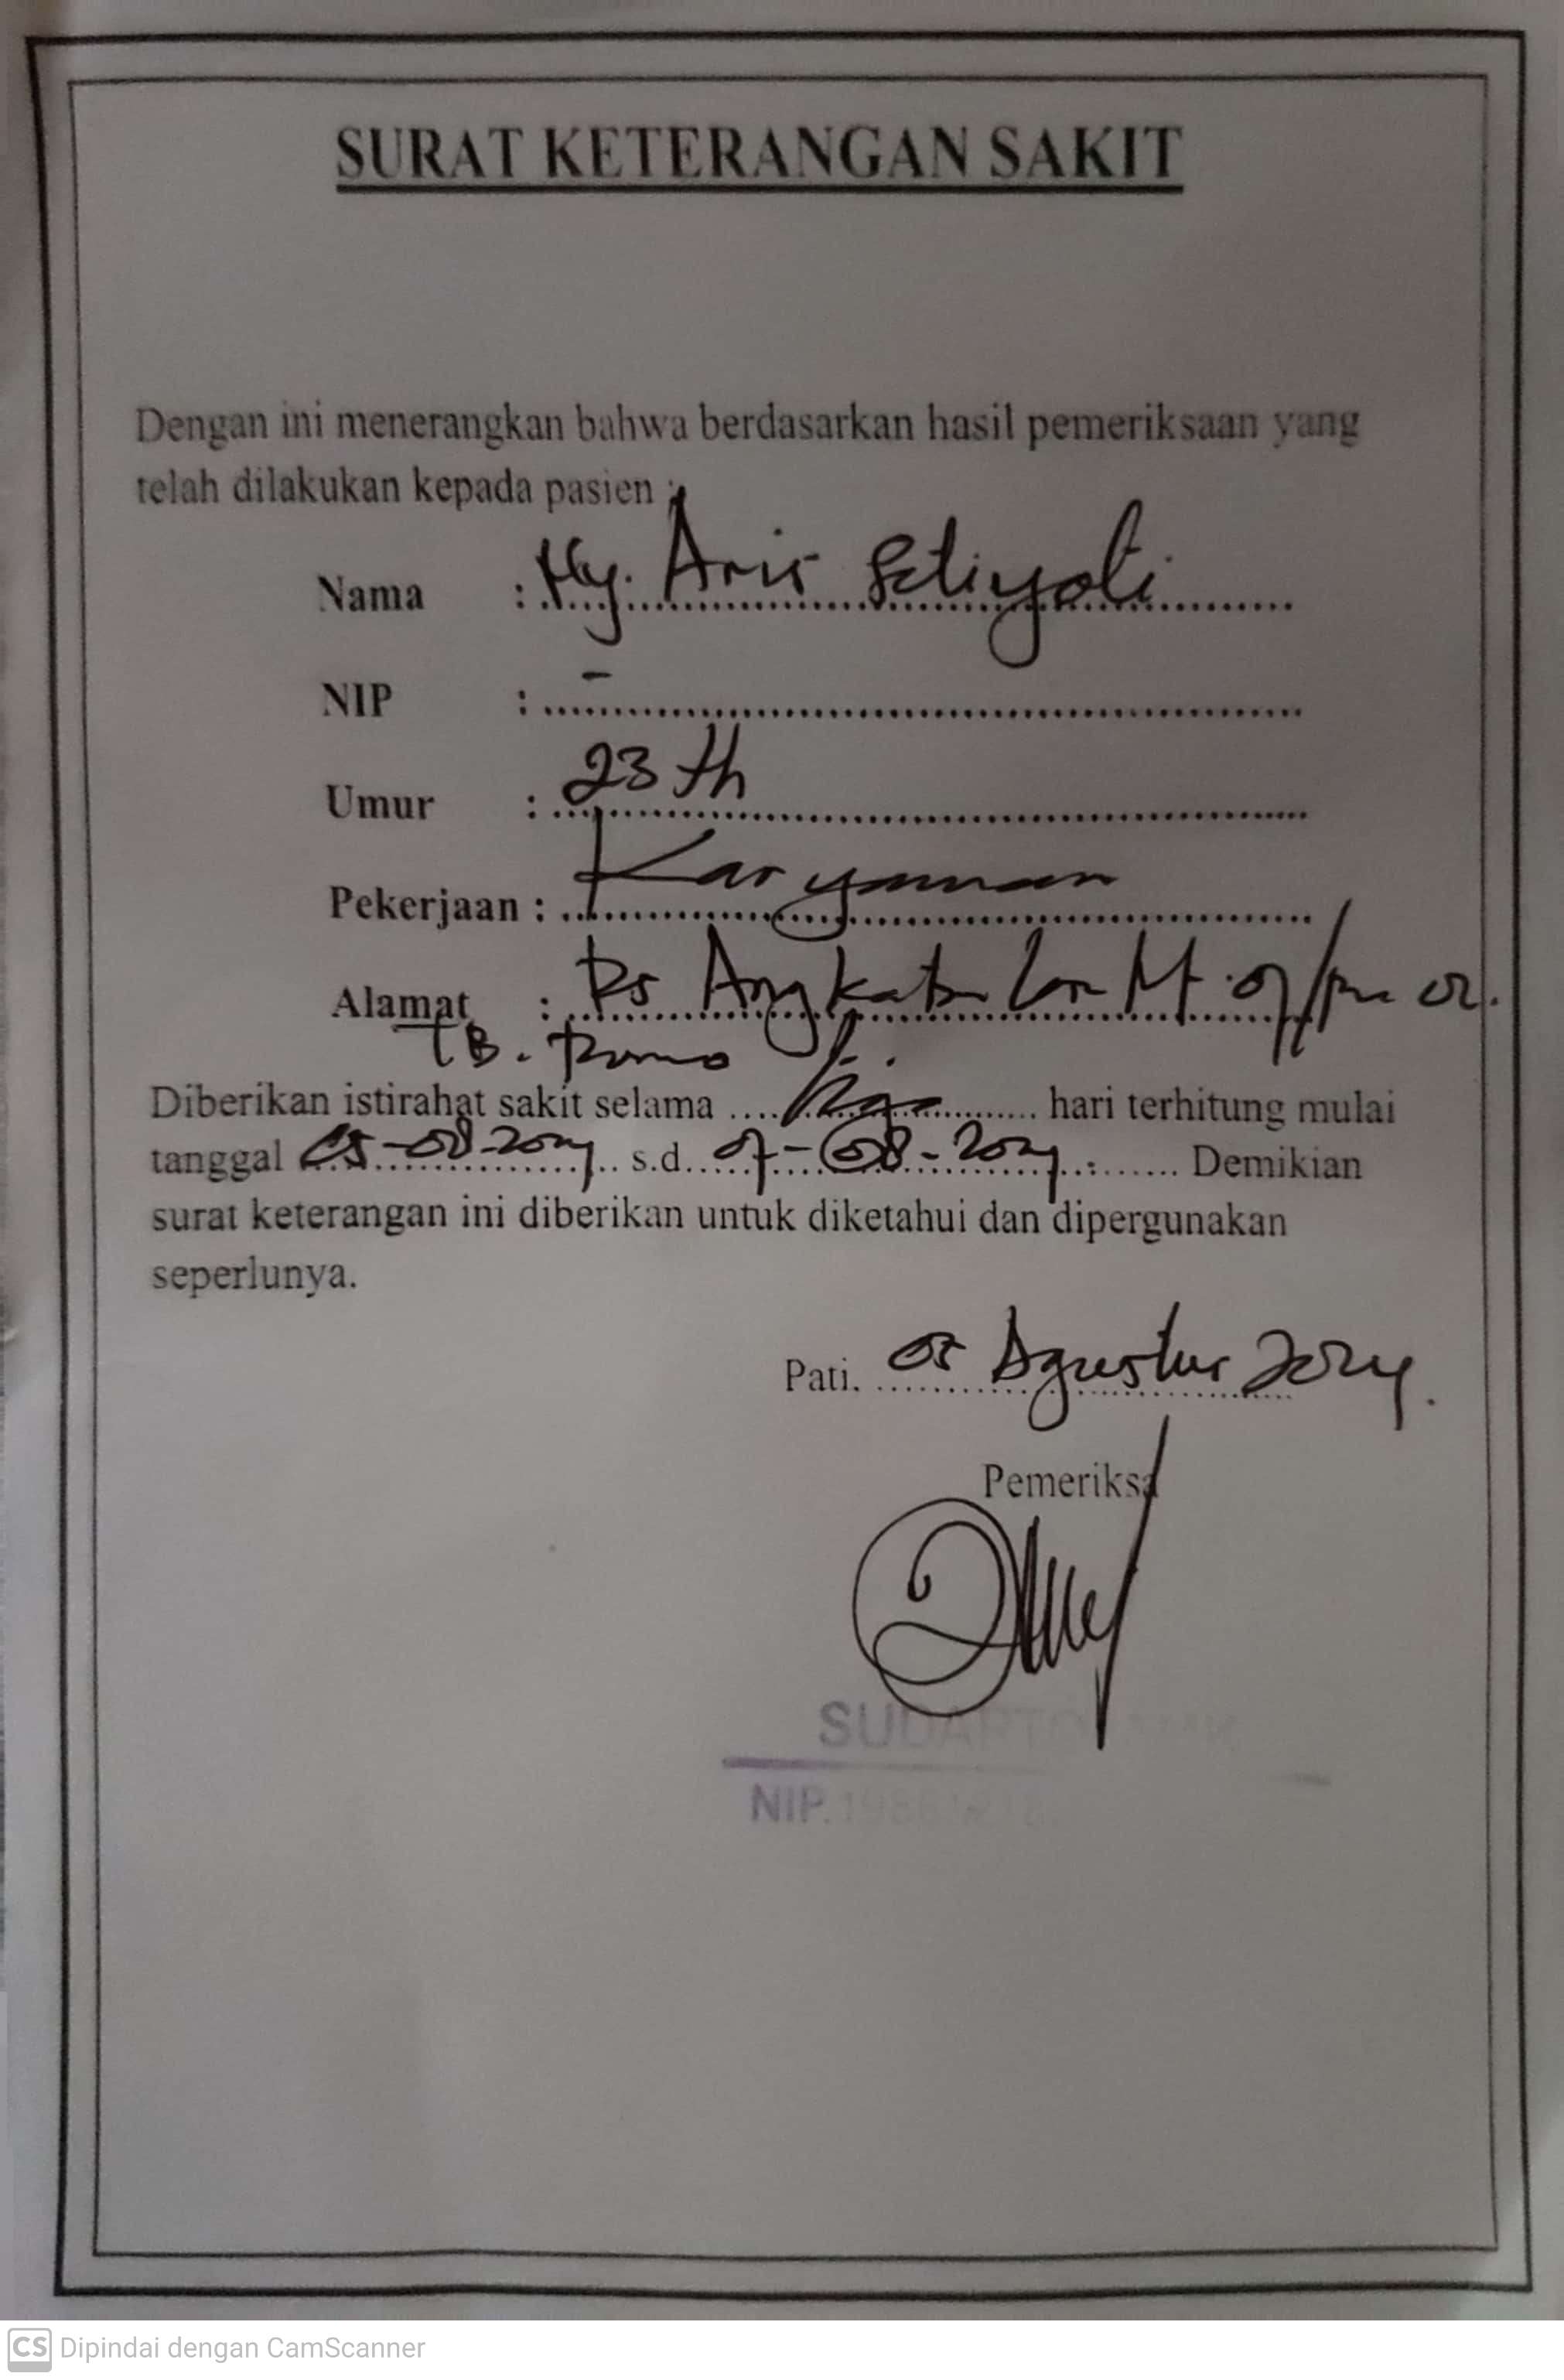 SURAT KETERANGAN SAKIT
Dengan ini menerangkan bahwa berdasarkan hasil pemeriksaan yang
telah dilakukan kepada pasien :
Nama : Ny. Aris Setiyoti
NIP : -
Umur : 23 th
Pekerjaan : Karyawan
Alamat : Ds Angkatan Lor Rt 07/Rw 02.
TB. Romo
Diberikan istirahat sakit selama .... tiga .... hari terhitung mulai
tanggal 05-08-2024 s.d. 07-08-2024 Demikian
surat keterangan ini diberikan untuk diketahui dan dipergunakan
seperlunya.
Pati. 05 Agustus 2024.
Pemeriksa
SUDARTO
NIP.
CS Dipindai dengan CamScanner